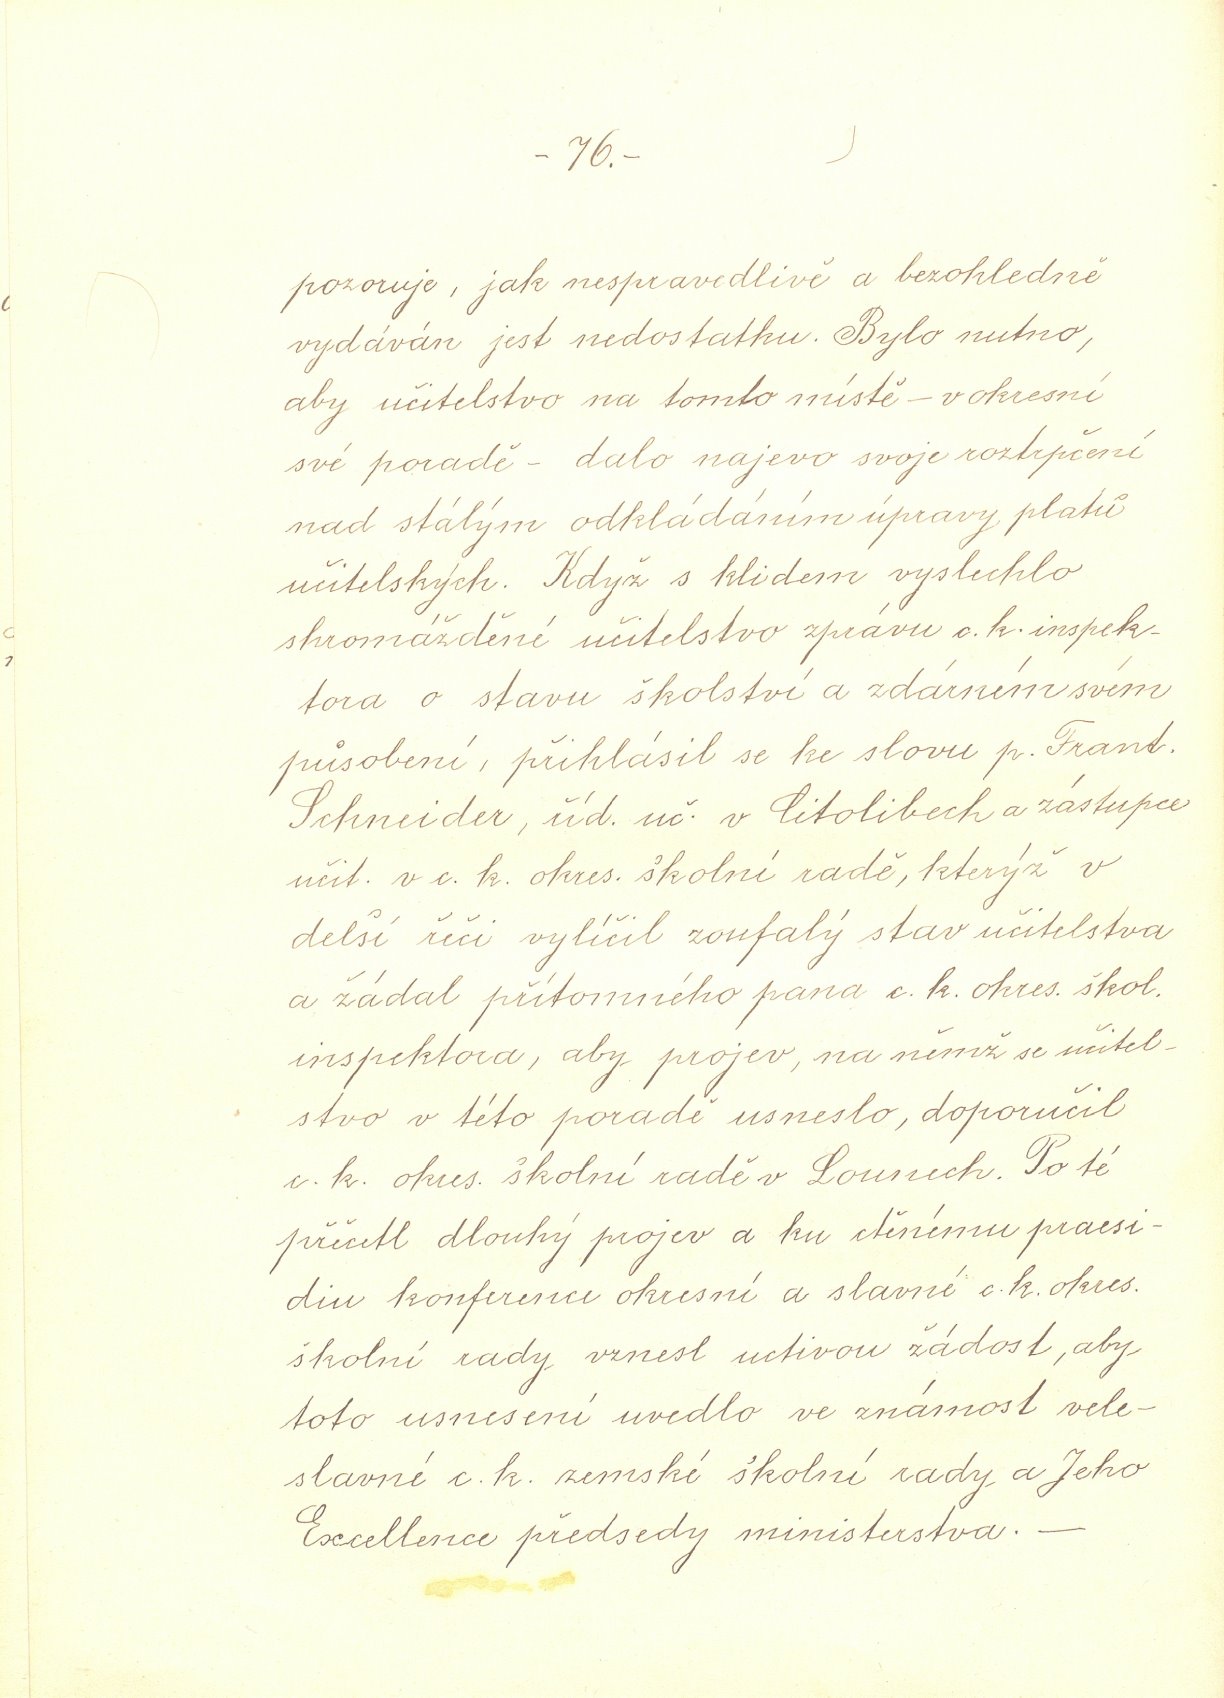 - 76. -
pozoruje, jak nespravedlivě a bezohledně
vydáván jest nedostatku. Bylo nutno,
aby učitelstvo na tomto místě - v okresní
své poradě - dalo najevo svoje roztrpčení
nad stálým odkládáním úpravy platů
učitelských. Když s klidem vyslechlo
shromážděné učitelstvo zprávu c. k. inspek-
tora o stavu školství a zdárném svém
působení, přihlásil se ke slovu p. Frant.
Schneider, říd. uč. v Citolibech a zástupce
učit. v c. k. okres. školní radě, kterýž v
delší řeči vylíčil zoufalý stav učitelstva
a žádal přítomného pana c. k. okres. škol.
inspektora, aby projev, na němž se učitel-
stvo v této poradě usneslo, doporučil
c. k. okres. školní radě v Lounech. Po té
přečetl dlouhý projev a ku ctěnému praesi-
diu konference okresní a slavné c. k. okres.
školní rady vznesl uctivou žádost, aby
toto usnesení uvedlo ve známost vele-
slavné c. k. zemské školní rady a Jeho
Excellence předsedy ministerstva. —